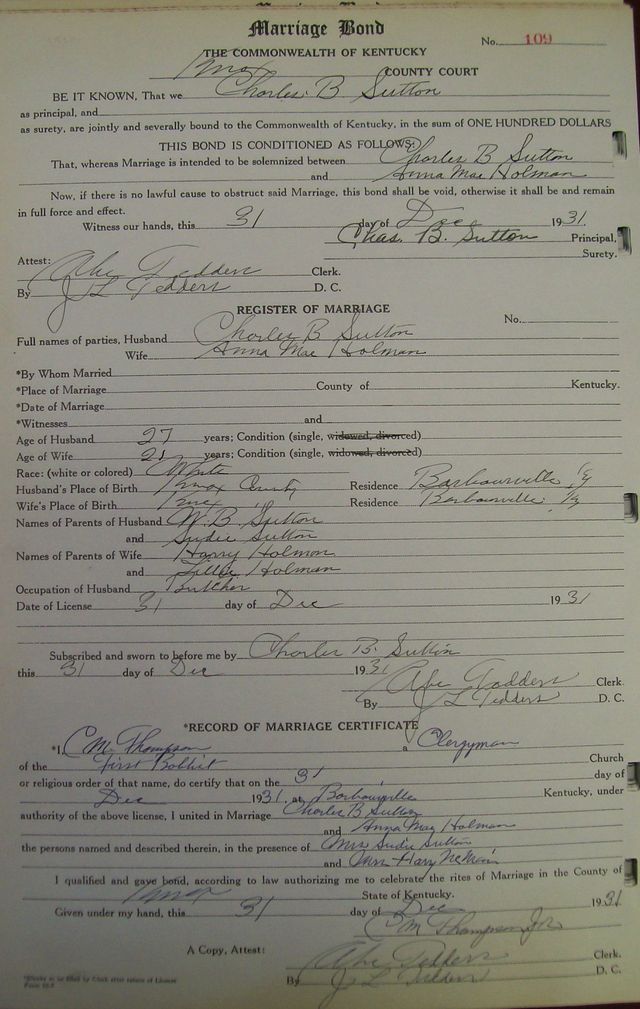 Marriage Bond
No. 109
THE COMMONWEALTH OF KENTUCKY
Knox COUNTY COURT
BE IT KNOWN, That we Charles B Sutton
as principal, and
as surety, are jointly and severally bound to the Commonwealth of Kentucky, in the sum of ONE HUNDRED DOLLARS
THIS BOND IS CONDITIONED AS FOLLOWS:
That, whereas Marriage is intended to be solemnized between Charles B Sutton
and Anna Mae Holman
Now, if there is no lawful cause to obstruct said Marriage, this bond shall be void, otherwise it shall be and remain
in full force and effect.
Witness our hands, this 31 day of Dec 1931.
Chas. B. Sutton Principal,
Surety.
Attest:
Abe Tedders Clerk.
By J L Tedders D. C.
REGISTER OF MARRIAGE
No.
Full names of parties, Husband Charles B Sutton
Wife Anna Mae Holman
*By Whom Married
*Place of Marriage County of Kentucky.
*Date of Marriage
*Witnesses and
Age of Husband 27 years; Condition (single, widowed, divorced)
Age of Wife 21 years; Condition (single, widowed, divorced)
Race: (white or colored) White
Husband's Place of Birth Knox County Residence Barbourville Ky
Wife's Place of Birth Knox Residence Barbourville Ky
Names of Parents of Husband W. B Sutton
and Sudie Sutton
Names of Parents of Wife Harry Holman
and Lillie Holman
Occupation of Husband Butcher
Date of License 31 day of Dec 1931
Subscribed and sworn to before me by Charles B. Sutton
this 31 day of Dec 1931
Abe Tedders Clerk.
By J L Tedders D. C.
*RECORD OF MARRIAGE CERTIFICATE
*I, C M Thompson a Clergyman
of the First Baptist Church
or religious order of that name, do certify that on the 31 day of
Dec 1931. at Barbourville Kentucky, under
authority of the above license, I united in Marriage Charles B Sutton
and Anna May Holman
the persons named and described therein, in the presence of Mrs Sudie Sutton
and Harry
I qualified and gave bond, according to law authorizing me to celebrate the rites of Marriage in the County of
Knox State of Kentucky.
Given under my hand, this 31 day of Dec 1931
C M Thompson Jr
A Copy, Attest:
Abe Tedders Clerk.
By J L Tedders D. C.
*Blanks to be filled by Clerk after return of License